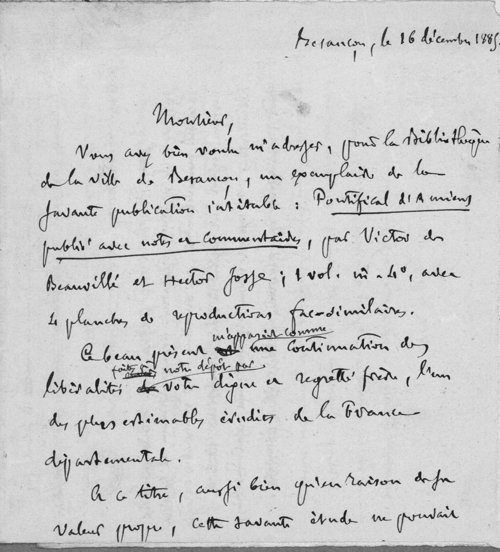 Besançon, le 16 décembre 1885.
Monsieur,
Vous avez bien voulu m'adresser, pour la Bibliothèque
de la ville de Besançon, un exemplaire de la
savante publication intitulée : Pontifical d'Amiens
publié avec notes et commentaires, par Victor de
Beauvillé et Hector Josse ; 1 vol. in-4°, avec
4 planches de reproductions fac-similaires.
m'apparaît comme
Ce beau présent une continuation des
faites à notre dépôt par
libéralités votre digne et regretté frère, l'un
des plus estimables érudits de la France
départementale.
A ce titre, aussi bien qu'en raison de sa
valeur propre, cette savante étude ne pouvait